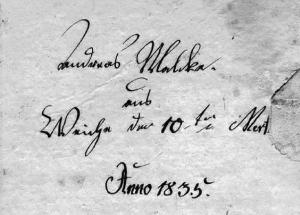 Andreas Maldke.
aus
Weicha den 10-ten Mert
Anno 1835.